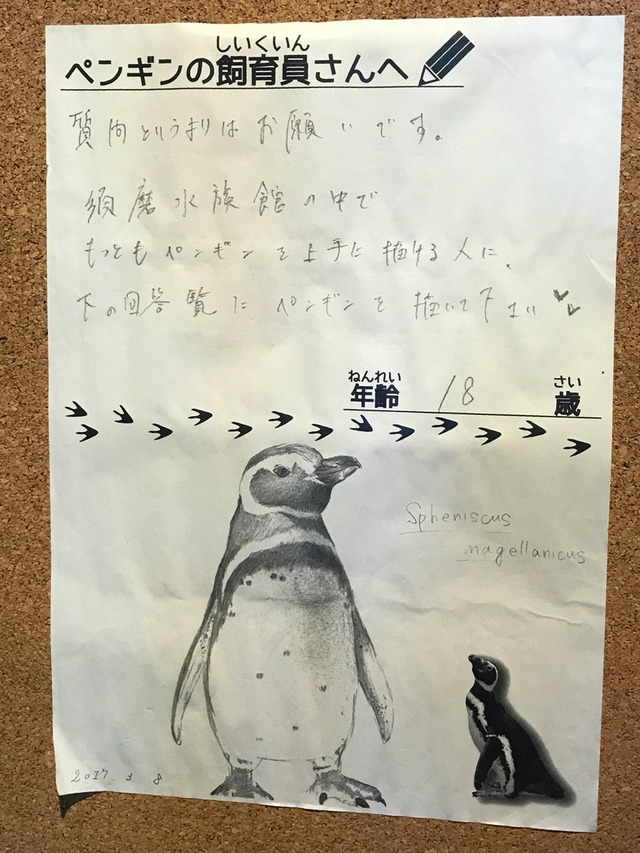 しいくいん
ペンギンの飼育員さんへ
質問というよりはお願いです。
須磨水族館の中で
もっともペンギンを上手に描ける人に、
下の回答覧にペンギンを描いて下さい
ねんれい
年齢 18 さい
歳
Spheniscus
magellanicus
2017 3 8